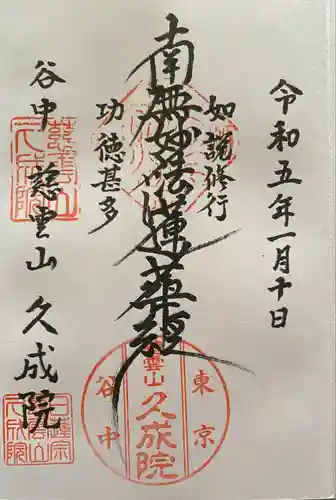 令和五年一月十日
如説修行
南無妙法蓮華経
功徳甚多
谷中 慈雲山 久成院
東京
雲山
久成院
谷中